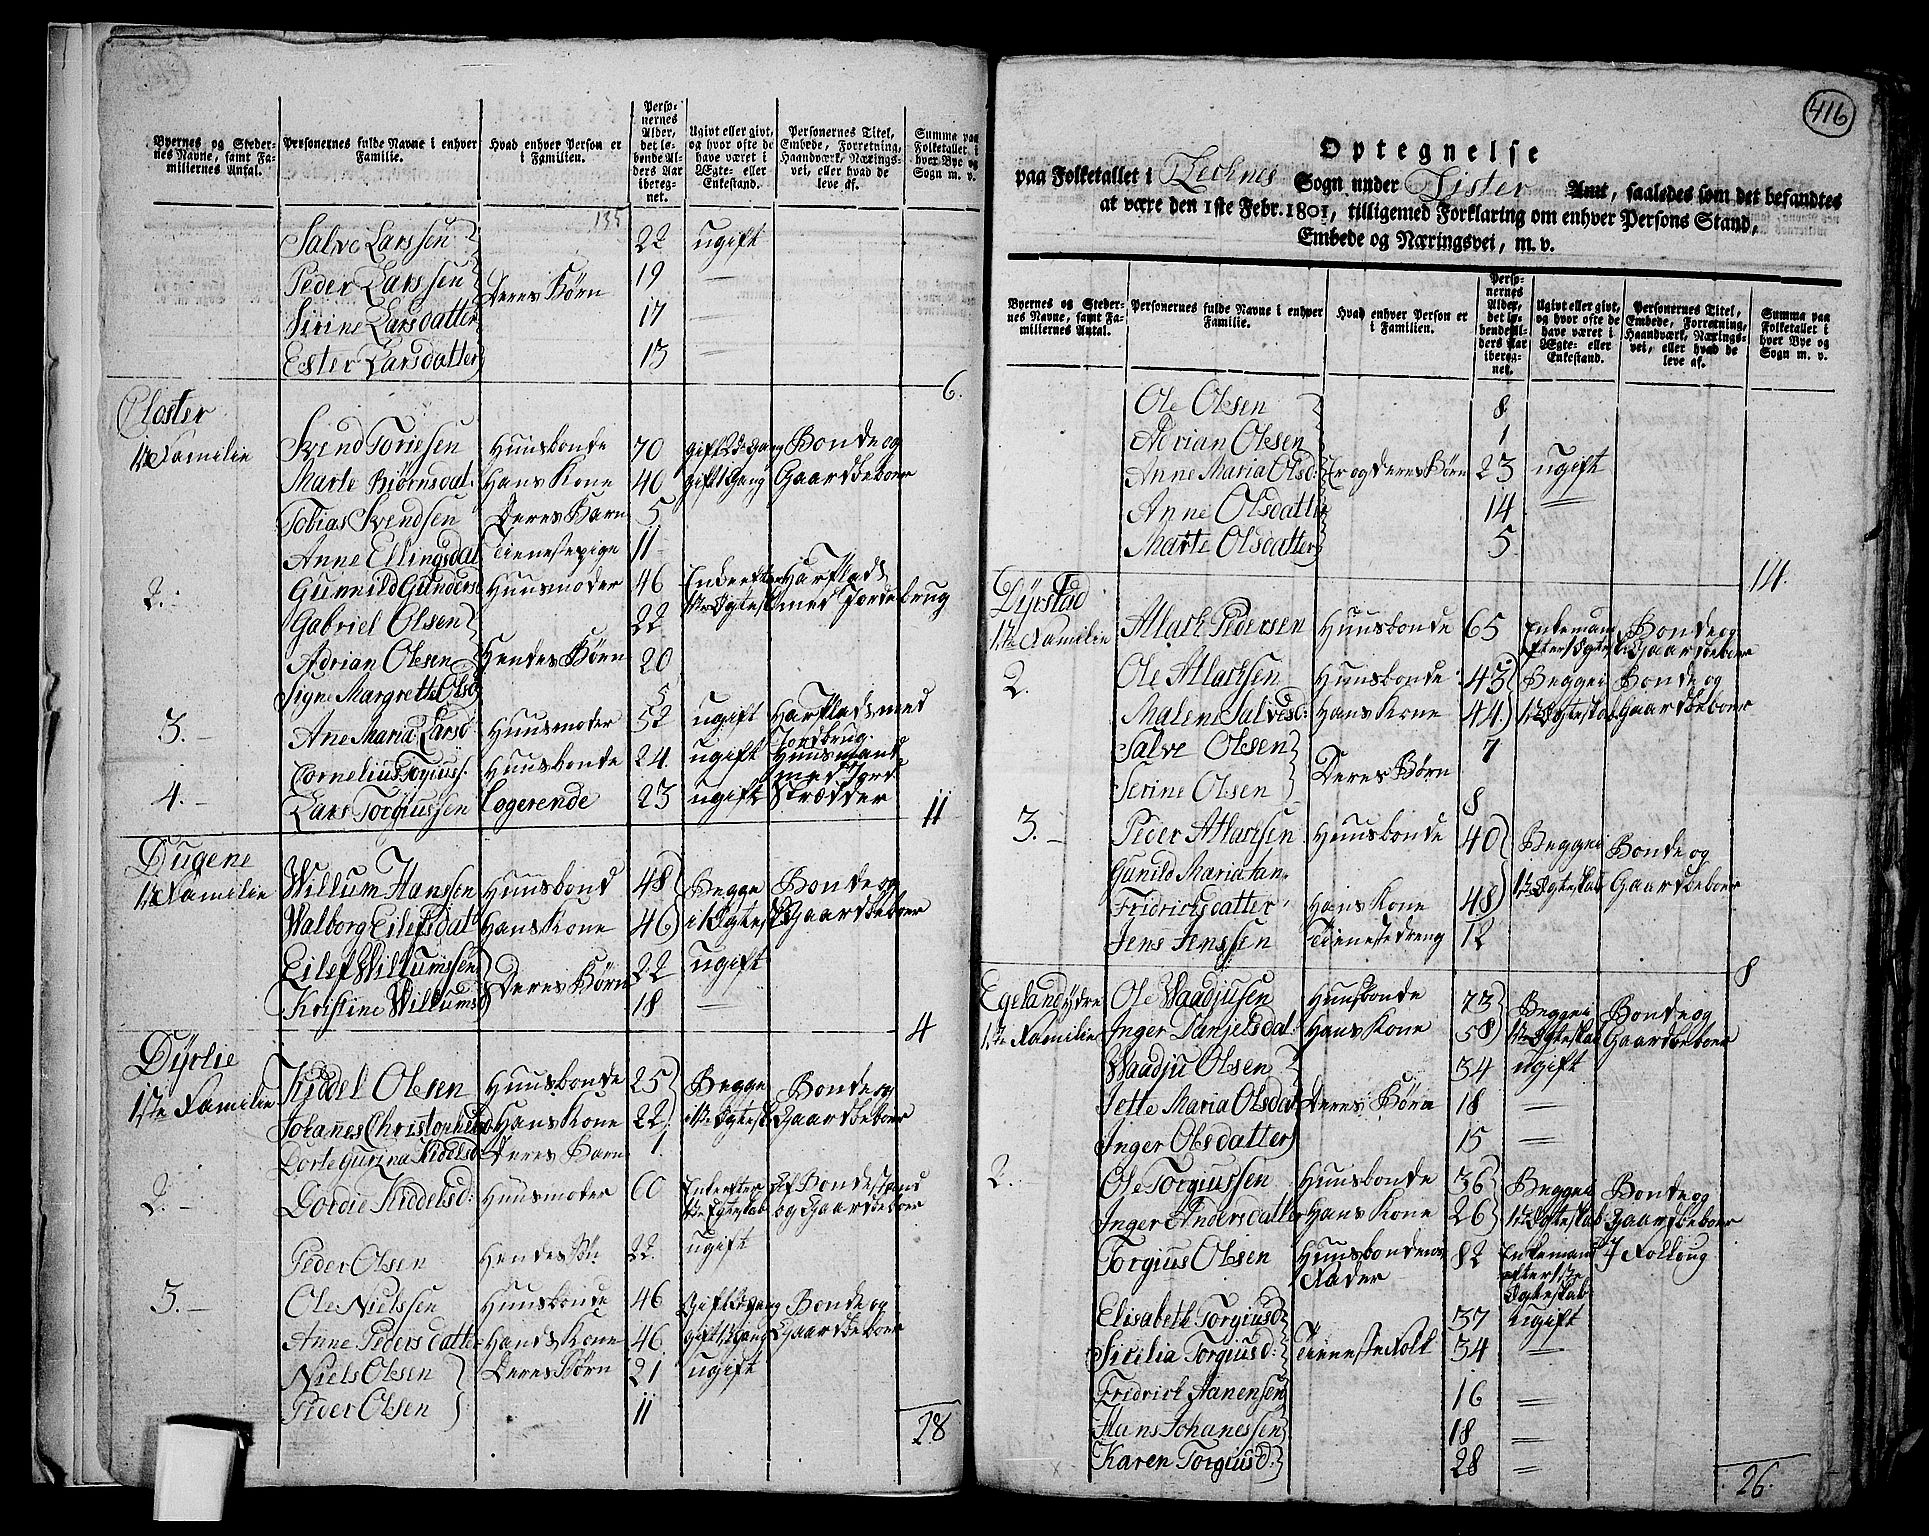 Byernes og Steder-
nes Navne, samt Fa-
miliernes Antal.
Personernes fulde Navne i enhver
Familie.
Hvad enhver Person er
i Familien.
Perso-
nernes
Alder,
det lø-
bende Al-
ders Aar
ibereg-
net.
Ugivt eller givt,
og hvor ofte de
have været i
Ægte- eller
Enkestand.
Personernes Titel,
Embede, Forretning,
Haandværk, Nærings-
vei, eller hvad de
leve af.
Summa paa
Folketallet i
hver Bye og
Sogn m. v.
135
Salve Larssen 22 ugift
Peder Larssen Deres Børn 19 —
Sirine Larsdatter 17 —
Ester Larsdatter 13 —
6.
Closter
1te Familie Svend Toriesen Huusbonde 70 gift 2de Gang Bonde og
Marte Biørnsdat: Hans Kone 40 gift 1 Gang Gaardbeboer
Tobias Svendsen Deres Barn 5
Anne Ellingsdat Tienestepige 11
2. Gunnild Gunders Huusmoder 46 Enke efter Har Plads
Gabriel Olsen 22 1te Egtesk. med Jordebrug
Adrian Olsen Hendes Børn 20
Signe Margrethe Olsd 5
3. Ane Maria Larsd Huusmoder 52 ugift Har Plads med
Jordbrug.
Cornelius Torgiuss. Huusbonde 24. ugift Huusmand
med Jord
4. Lars Torgiussen Logerende 23 ugift Skrædder
11
Dugene
1te Familie Willum Hanssen Huusbond 48 Begge Bonde og
Walborg Eilefsdat Hans Kone 46 i 1te Egtesk. Gaardbeboer
Eilef Willumssen Deres Børn 22 ugift
Kristine Willumsd 18 —
4
Dyrlie
1ste Familie Kiddel Olsen Huusbonde 25 Begge Bonde og
Johannes Christophersd Hans Kone 22 1te Egtesk. Gaardbeboer
Dorte Gurina Kidelsd Deres Barn 1.
2. Dordie Kiddelsd: Huusmoder 60 Enke efter Af Bondestand
1te Egteskab og Gaardbeboer
Peder Olsen Hendes Søn 22. ugift
3. Ole Nielssen Huusbonde 46 Gift 2de Gang Bonde og
Anne Pedersdatter Hans Kone 46 gift 1 Gang Gaardbeboer
Niels Olsen Deres Børn 21 ugift
Peder Olsen 11
28
416
Optegnelse
paa Folketallet i Sogn under Lister Amt, saaledes som det befandtes
at være den 1ste Febr. 1801, tilligemed Forklaring om enhver Persons Stand,
Embede og Næringsvei, m. v.
Byernes og Steder-
nes Navne, samt Fa-
miliernes Antal.
Personernes fulde Navne i enhver
Familie.
Hvad enhver Person er
i Familien.
Perso-
nernes
Alder,
det lø-
bende Al-
ders Aar
ibereg-
net.
Ugivt eller givt,
og hvor ofte de
have været i
Ægte- eller
Enkestand.
Personernes Titel,
Embede, Forretning,
Haandværk, Nærings-
vei, eller hvad de
leve af.
Summa paa
Folketallet i
hver Bye og
Sogn m. v.
Ole Olsen 8
Adrian Olsen 1
Anne Maria Olsd: er og deres Børn 23 ugift
Anne Olsdatter 14 —
Marte Olsdatter 5
14.
Dyrstad
1te Familie Atlach Pedersen Huusbonde 65 Enkemand Bonde og
efter 1 Egtesk. Gaardbeboer
2. Ole Atlachsen Huusbonde 43 Begge i Bonde og
Malene Salvesd: Hans Kone 44 1te Egteskab Gaardbeboer
Salve Olsen Deres Børn 7
Serine Olsen 8
3. Peder Atlachsen Huusbonde 40 Begge i Bonde og
Gunild Maria
Fridrichsdatter Hans Kone 48 1te Egteskab Gaardbeboer
Jens Jenssen Tienestedreng 12
8
Egeland ydre Ole Waadjusen Huusbonde 73 Begge i Bonde og
1te Familie Inger Danjelsdat: Hans Kone 58 1te Egteskab Gaardbeboer
Waadju Olsen 34 ugift
Jette Maria Olsdat Deres Børn 18 —
Inger Olsdatter 15 —
2. Ole Torgiussen Huusbonde 36 Begge i Bonde og
Inger Andersdatter Hans Kone 26 1te Egteskab Gaardbeboer
Torgius Olsen Huusbondens 82 Enkemand J Folloug
Fader efter 1te
Egteskab
Elisabeth Torgiusd 37 ugift
Sicilia Torgiusd: Tieneste Folk 34 —
Fridrich Aanensen 16 —
Hans Johanessen 18 —
Karen Torgiusd: 28 —
26.